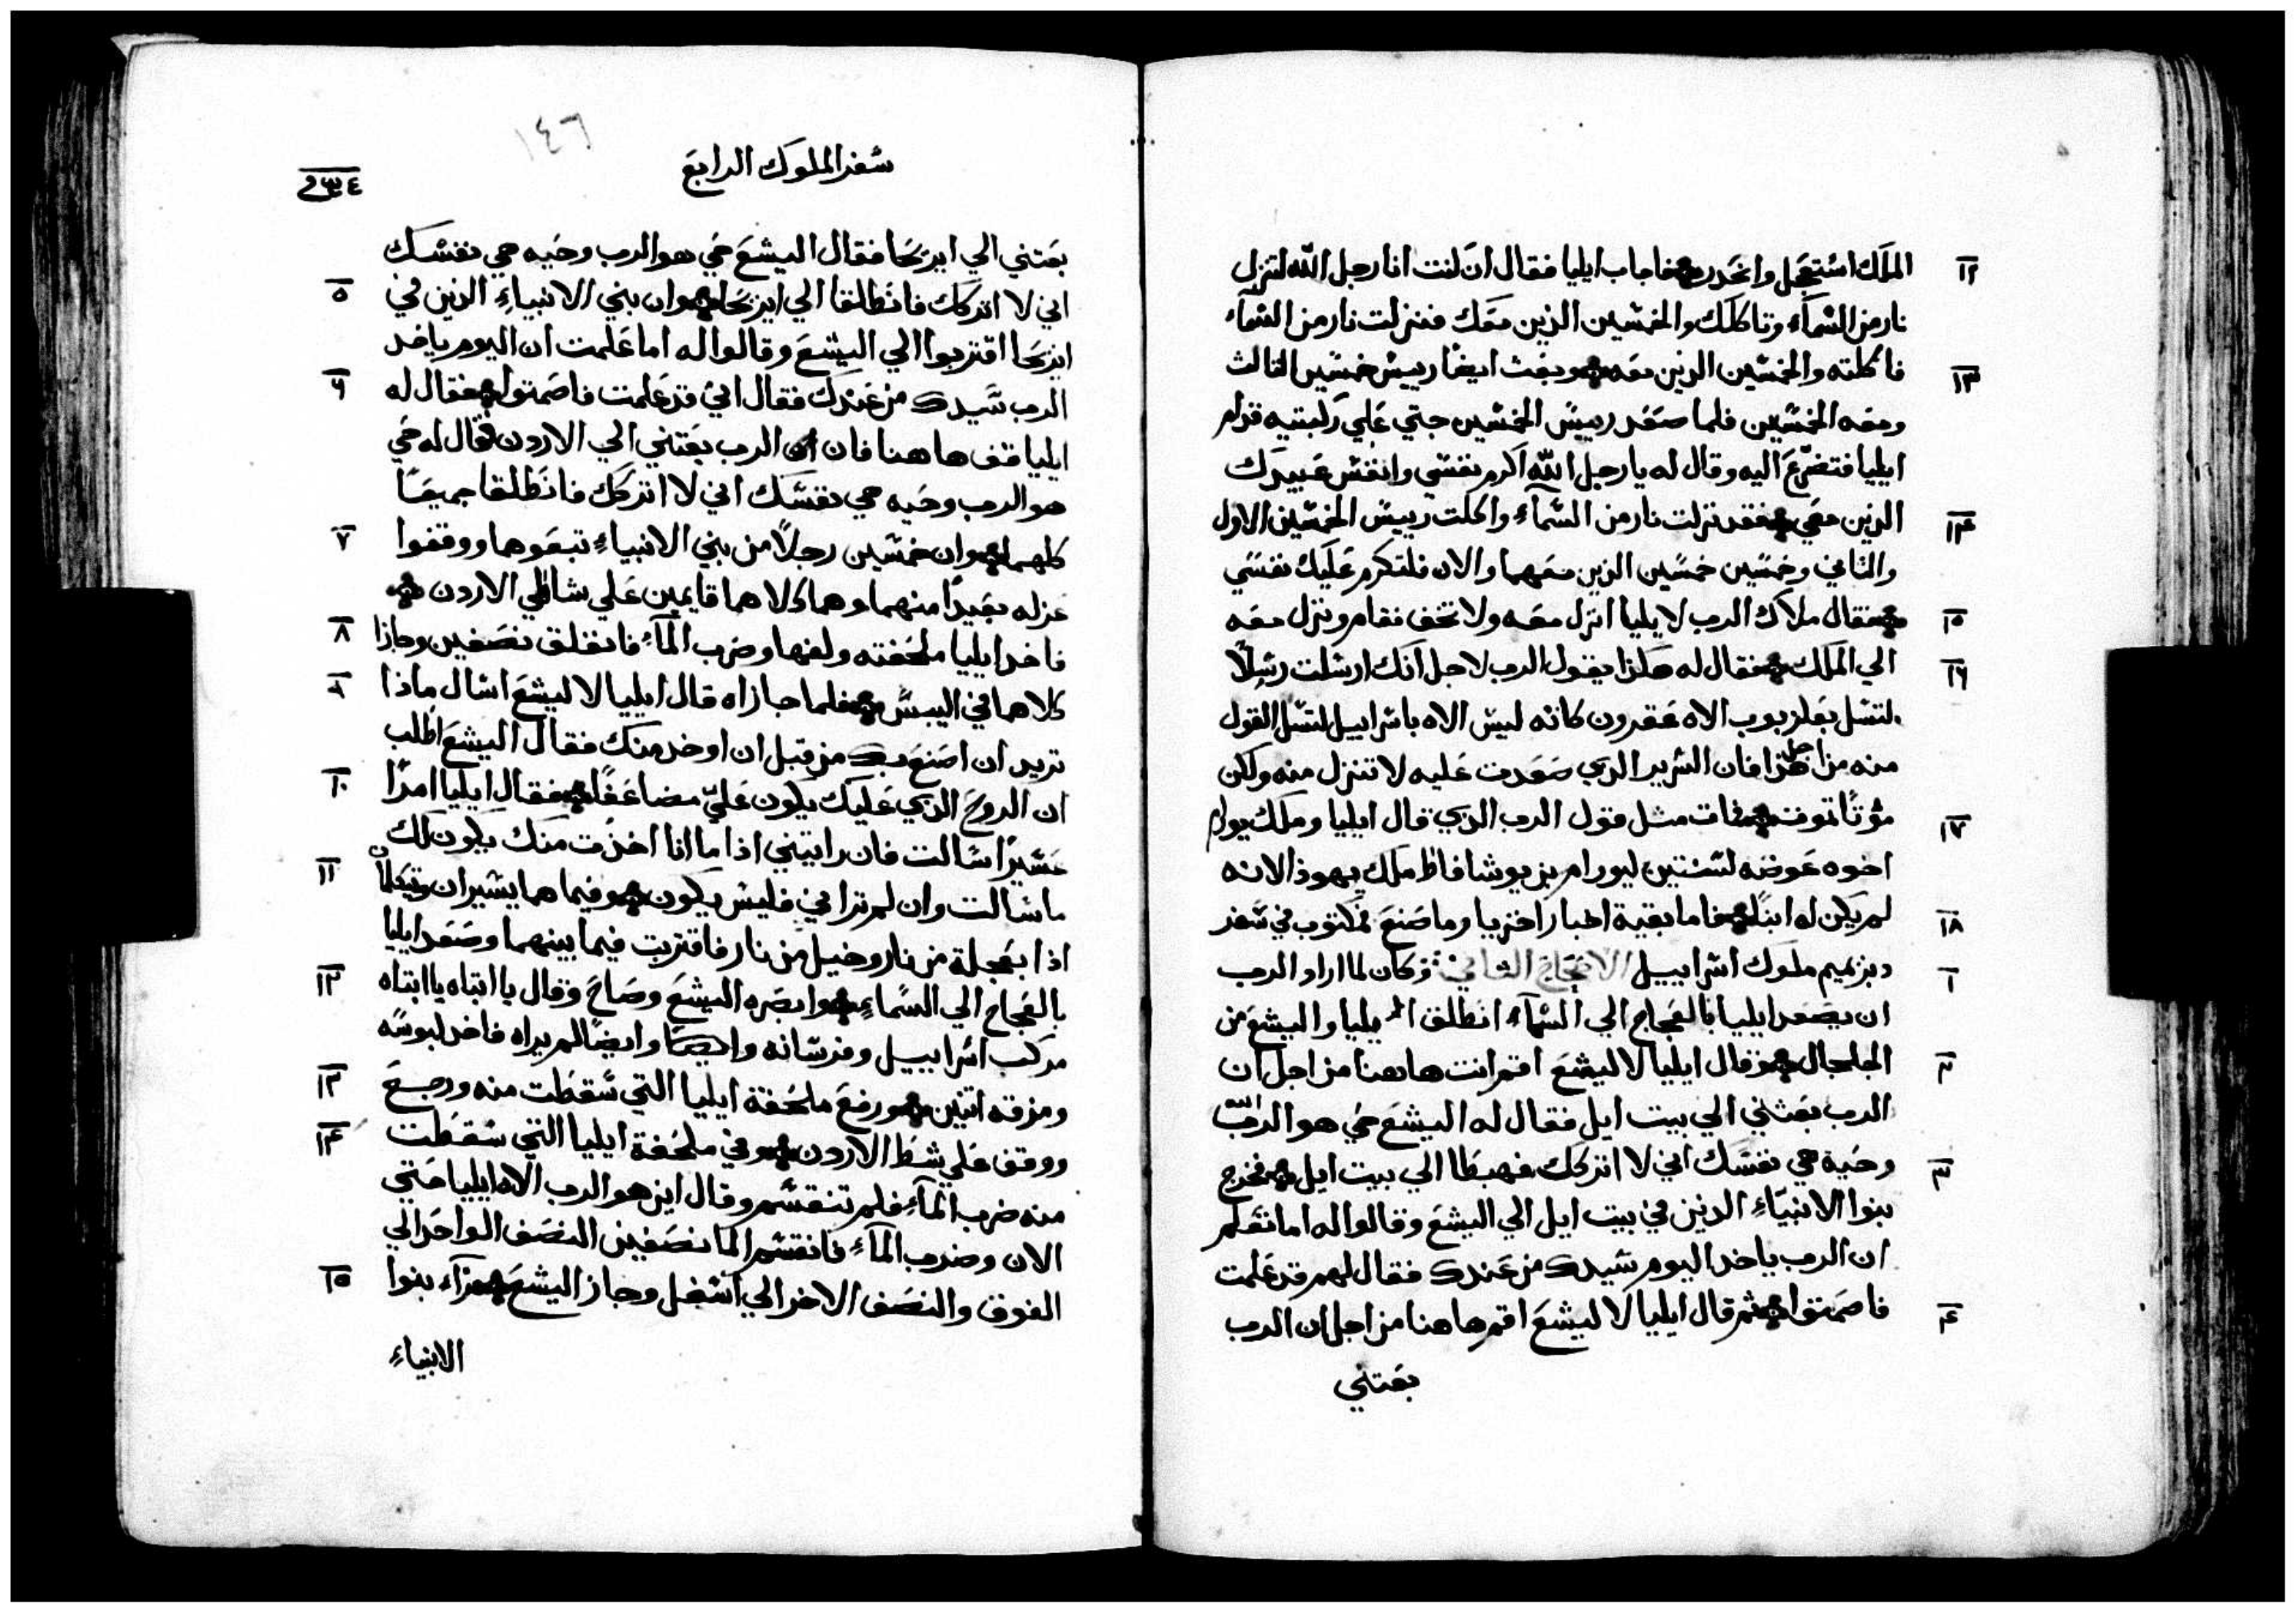 الملك استعجل وانحدر فاجاب ايليا فقال ان كنت انا رجل الله لتنزل ١٢
نار من السمآء وتاكلك والخمسين الذين معك فنزلت نار من السمآء
فاكلته والخمسين الدين معه وبعث ايضًا رييس خمسين الثالث ١٣
ومعه الخمسين فلما صعد رييس الخمسين جتي علي ركبتيه قدام
ايليا فتضرع اليه وقال له يا رجل الله اكرم نفسي وانفس عبيدك
الدين معي فقد نزلت نار من السمآء واكلت رييس الخمسين الاول ١٤
والثاني وخمسين خمسين الزين معهما والان فلتكرم عليك نفسي
فقال ملاك الرب لايليا انزل معه ولا تخف فقام ونزل معه ١٥
الي الملك فقال له هكذا يقول الرب لاجل انك ارسلت رسلًا ١٦
لتسل بعلزبوب الاه عقرون كانه ليس الاه باسراييل لتسل القول
منه من اجل هذا فان السرير الدي صعدت عليه لا تنزل منه ولكن
موتًا تموت فمات مثل قول الرب الذي قال ايليا وملك يورام ١٧
اخوه عوضه لسنتين ليورام بن يوشافاط ملك يهوذا لانه
لم يكن له ابنًا فاما بقية اخبار اخزيا وما صنع مكتوب في سفر ١٨
دبزيميم ملوك اسراييل الاصحاح الثاني وكان لما اراد الرب ١
ان يصعد ايليا بالعجاج الي السمآء انطلق ايليا واليشع من
الجلجال وقال ايليا لاليشع اقم انت هاهنا من اجل ان ٢
الرب بعثني الي بيت ايل فقال له اليشع حي هو الرب
وحية هي نفسك اني لا اتركك فهبطا الي بيت ايل فخرج ٣
بنوا الانبيآء الدين في بيت ايل الي اليشع وقالوا له اما تعلم
ان الرب ياخد اليوم سيدك من عندك فقال لهم قد علمت
فاصمتوا ثم قال ايليا لاليشع اقم هاهنا من اجل ان الرب ٤
بعتني
١٤٦
سفر الملوك الرابع
بعتني الي ايريحا فقال اليشع حي هو الرب وحيه هي نفسك
اني لا اتركك فانطلقا الي ايريحا وان بني الانبياء الذين في ٥
ايريحا اقتربوا الي اليشع وقالوا له اما علمت ان اليوم ياخد
الرب سيدك من عندك فقال اني قد علمت فاصمتوا فقال له ٦
ايليا قف هاهنا فان الرب بعتني الي الاردن فقال له حي
هو الرب وحيه هي نفسك اني لا اتركك فانطلقا جميعًا
كلهما وان خمسين رجلًا من بني الانبياء تبعوهما ووقفوا ٧
عزله بعيدًا منهما وهما كلاهما قايمين علي شاطي الاردن
فاخد ايليا ملحفته ولفها وضرب المآء فانفلق نصفين وجازا ٨
كلاهما في اليبس فلما جازاه قال ايليا لاليشع اسال ماذا ٩
تريد ان اصنع بك من قبل ان اوخد منك فقال اليشع اطلب
ان الروح الدي عليك يكون عليّ مضاعفًا فقال ايليا امرًا ١٠
عسيرًا سالت فان رايتني اذا ما انا اخذت منك يكون لك
ما سالت وان لم تراني فليس يكون وفيما هما يسيران ويتكلمان ١١
اذا بعجلة من نار وخيل من نار فاقتربت فيما بينهما وصعد ايليا
بالعجاج الي السماء وابصره اليشع وصاح وقال يا ابتاه يا ابتاه ١٢
مركب اسراييل وفرسانه وايضًا لم يراه فاخد لبوسه
ومزقه اتنين ورفع ملحفة ايليا التي سقطت منه ورجع ١٣
ووقف علي شط الاردن وفي ملحفة ايليا التي سقطت ١٤
منه ضرب المآء فلم تنقسم وقال اين هو الرب الاه ايليا حتي
الان وضرب المآء فانقسم الما نصفين النصف الواحد الي
الفوق والنصف الاخر الي اسفل وجاز اليشع فرآه بنوا ١٥
الانبياء